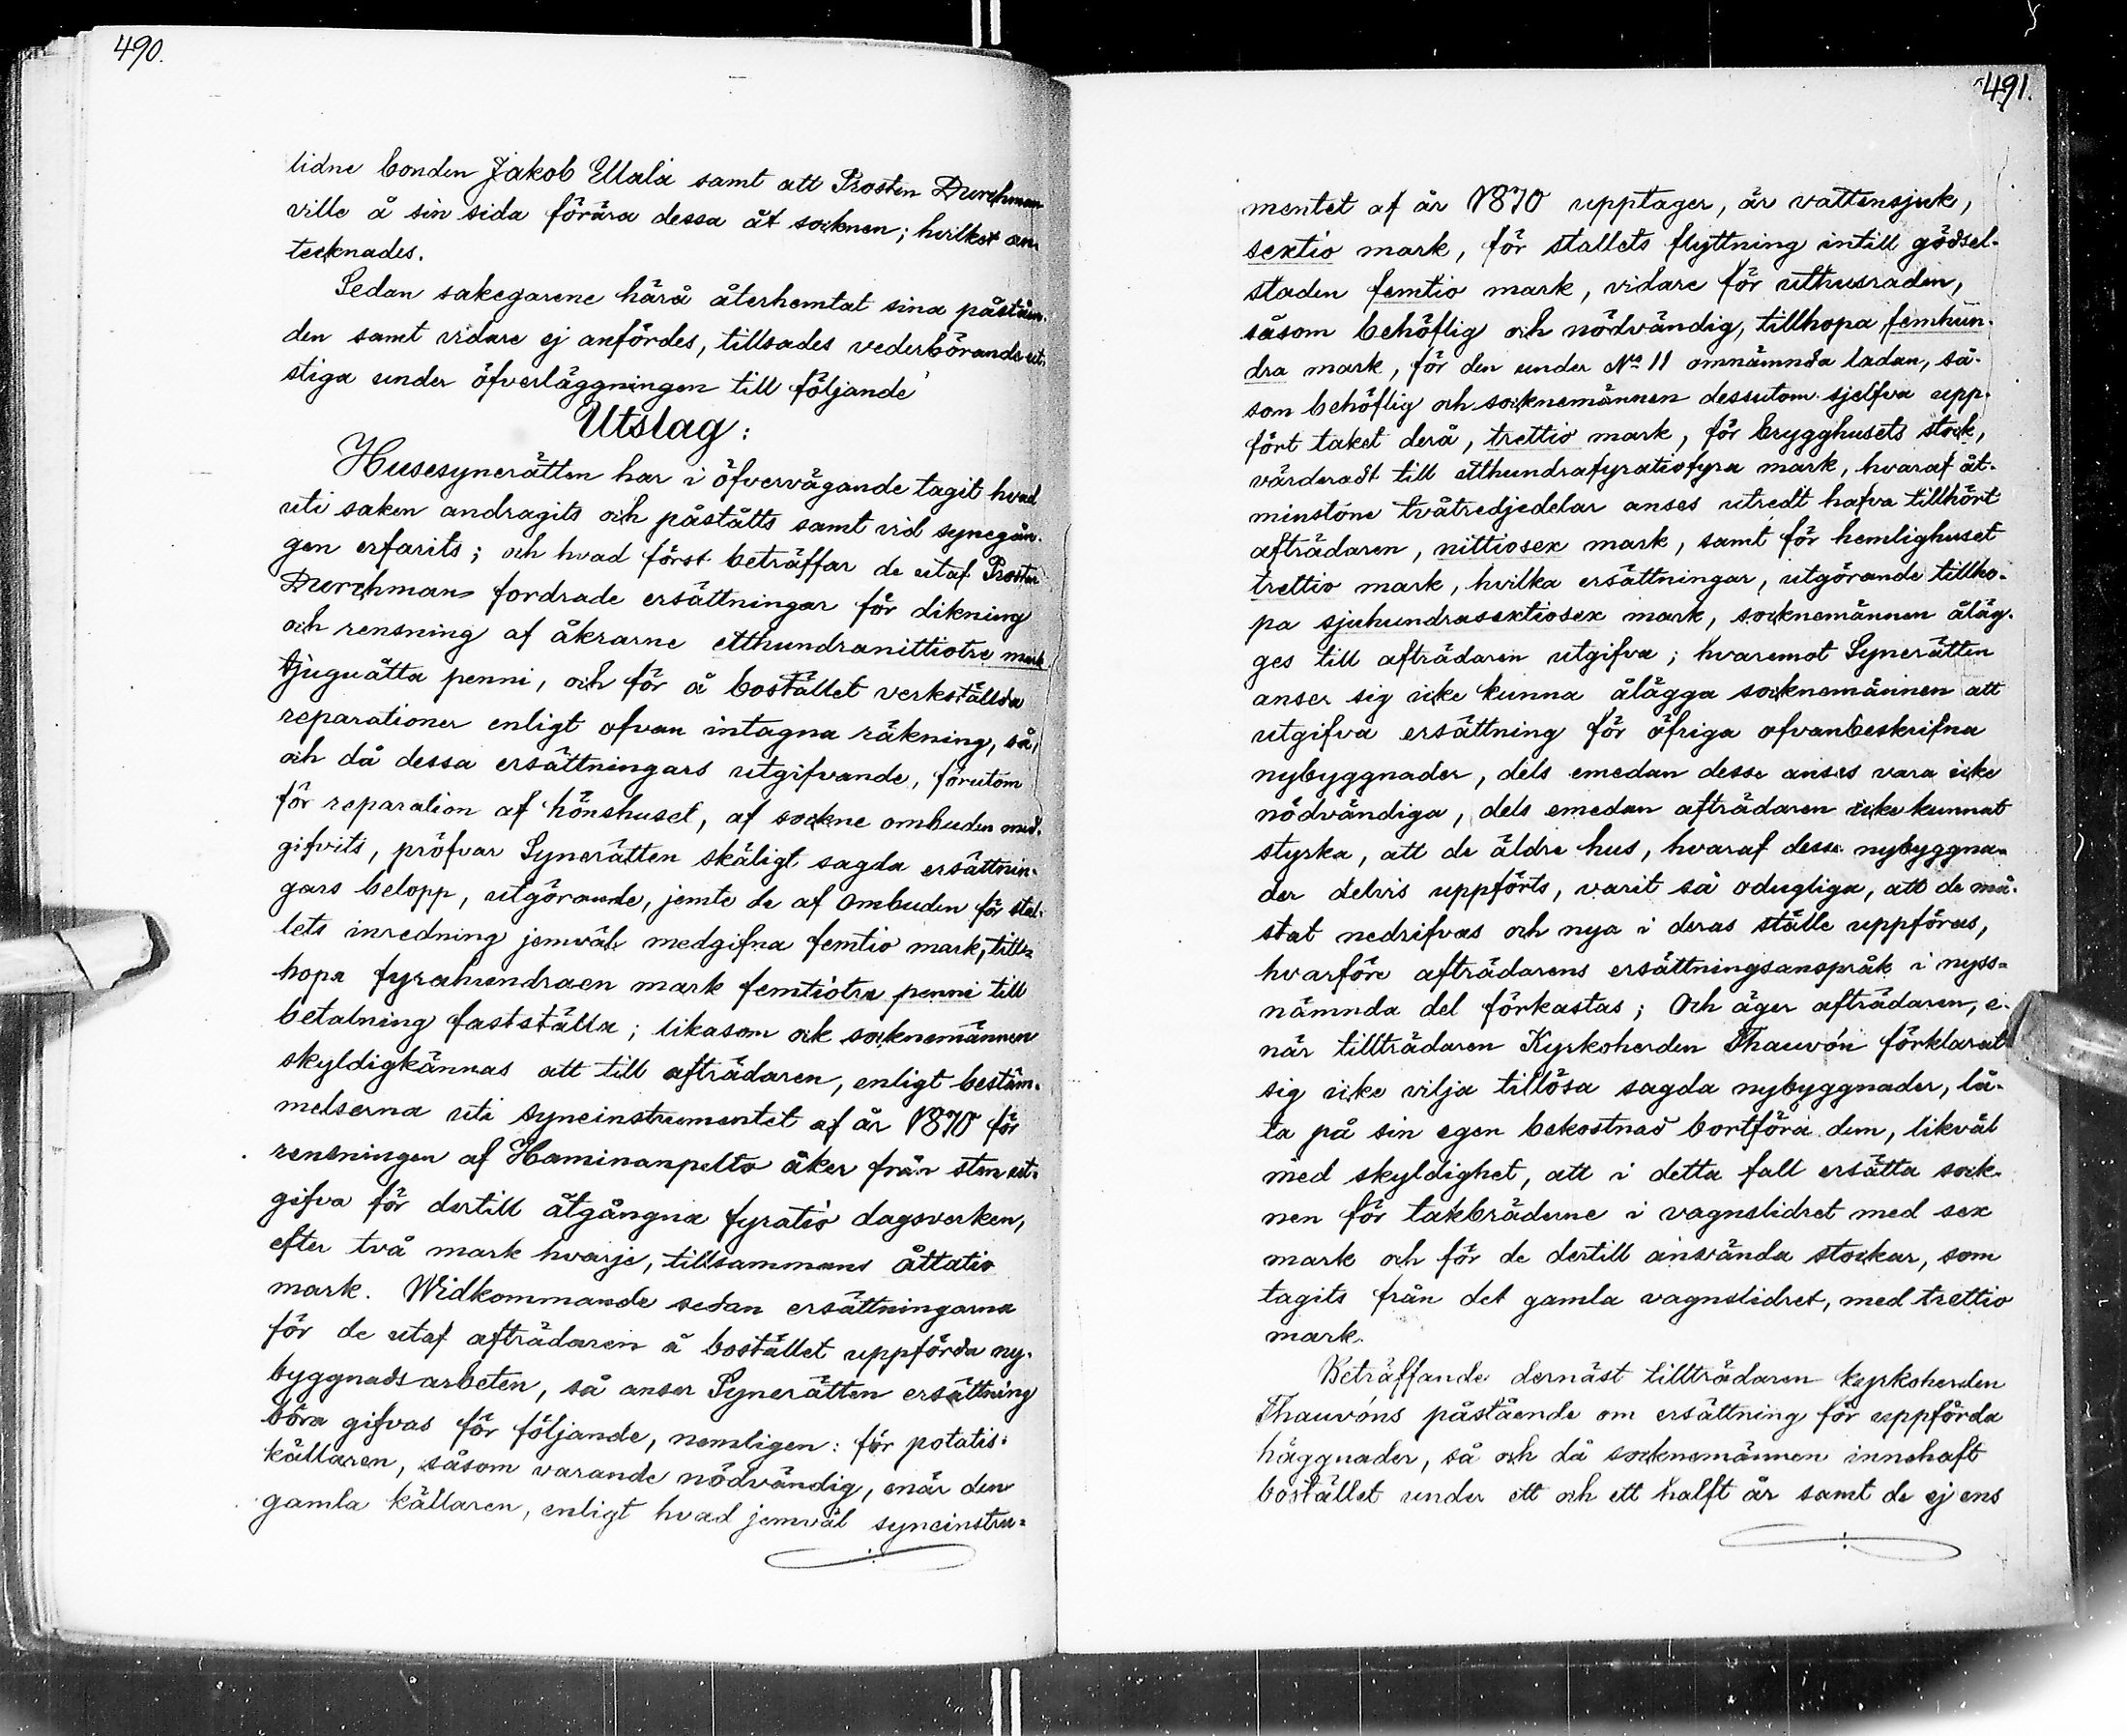 490.
lidne bonden Jakob Ellala samt att Prosten Durchman
ville å sin sida förära dessa åt socknen; hvilket an-
tecknades.
Sedan sakegarene härå återhemtat sina påståen-
den samt vidare ej anfördes, tillsades vederbörande ut-
stiga under öfverläggningen till följande
Utslag:
Husesynerätten har i öfvervägande tagit hvad
uti saken andragits och påståtts samt vid synegån-
gen erfarits; och hvad först beträffar de utaf Prosten
Durchman fordrade ersättningar för dikning
och rensning af åkrarne etthundranittiotre mark
tjuguåtta penni, och för å bostället verkställda
reparationer enligt ofvan intagna räkning, så,
och då dessa ersättningars utgifvande, förutom
för reparation af hönshuset, af sockne ombuden med-
gifvits, pröfvar Synerätten skäligt sagda ersättnin-
gars belopp, utgörande, jemte de af Ombuden för stal-
lets inredning jemväl medgifna femtio mark, till-
hopa fyrahundraen mark femtiotre penni till
betalning fastställa; likasom ock socknemännen
skyldigkännas att till afträdaren, enligt bestäm-
melserna uti syneinstrumentet af år 1870 för
rensningen af Haminanpelto åker från sten ut-
gifva för dertill åtgångna fyratio dagsverken,
efter två mark hvarje, tillsammans åttatio
mark. Widkommande sedan ersättningarna
för de utaf afträdaren å bostället uppförda ny-
byggnadsarbeten, så anser Synerätten ersättning
böra gifvas för följande, nemligen: för potatis-
källaren, såsom varande nödvändig, enär den
gamla källaren, enligt hvad jemväl syneinstru-
491.
mentet af år 1870 upptager, är vattensjuk,
sextio mark, för stallets flyttning intill gödsel-
staden femtio mark, vidare för uthusraden,
såsom behöflig och nödvändig, tillhopa femhun-
dra mark, för den under No 11 omnämnda ladan, så-
som behöflig och socknemännen dessutom sjelfva upp-
fört taket derå, trettio mark, för brygghusets stock,
värderadt till etthundrafyratiofyra mark, hvaraf åt-
minstone tvåtredjedelar anses utredt hafva tillhört
afträdaren, nittiosex mark, samt för hemlighuset
trettio mark, hvilka ersättningar, utgörande tillho-
pa sjuhundrasextiosex mark, socknemännen åläg-
ges till afträdaren utgifva; hvaremot Synerätten
anser sig icke kunna ålägga socknemännen att
utgifva ersättning för öfriga ofvanbeskrifna
nybyggnader, dels emedan desse anses vara icke
nödvändiga, dels emedan afträdaren icke kunnat
styrka, att de äldre hus, hvaraf desse nybyggna-
der delvis uppförts, varit så odugliga, att de må-
stat nedrifvas och nya i deras ställe uppföras,
hvarföre afträdarens ersättningsanspråk i nyss-
nämnda del förkastas; Och äger afträdaren, e-
när tillträdaren Kyrkoherden Thauvón förklarat
sig icke vilja tillösa sagda nybyggnader, lå-
ta på sin egen bekostnad bortföra dem, likväl
med skyldighet, att i detta fall ersätta sock-
nen för takbräderne i vagnslidret med sex
mark och för de dertill använda stockar, som
tagits från det gamla vagnslidret, med trettio
mark.
Beträffande dernäst tillträdaren kyrkoherden
Thauvóns påstående om ersättning för uppförda
häggnader, så och då socknemännen innehaft
bostället under ett och ett halft år samt de ej ens